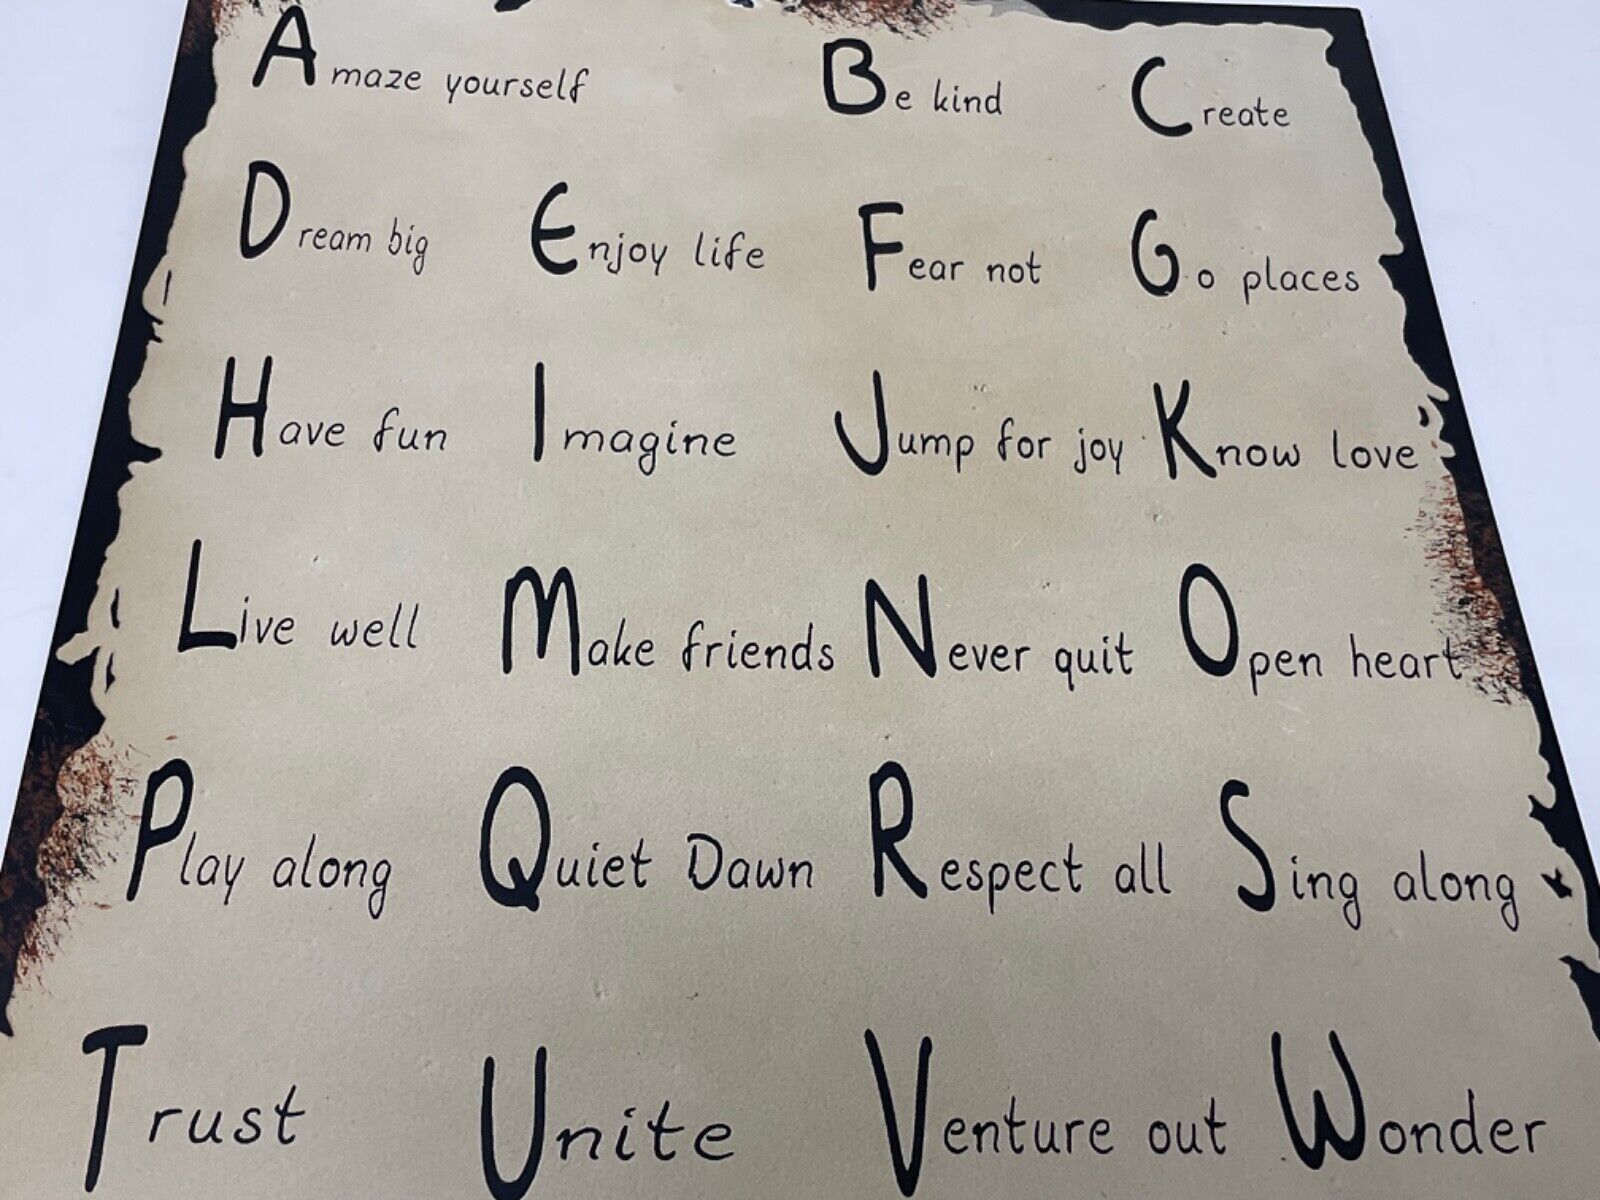 Amaze yourself Be kind Create
Dream big Enjoy life Fear not Go places
Have fun Imagine Jump for joy Know love
Live well Make friends Never quit Open heart
Play along Quiet Dawn Respect all Sing along
Trust Unite Venture out Wonder